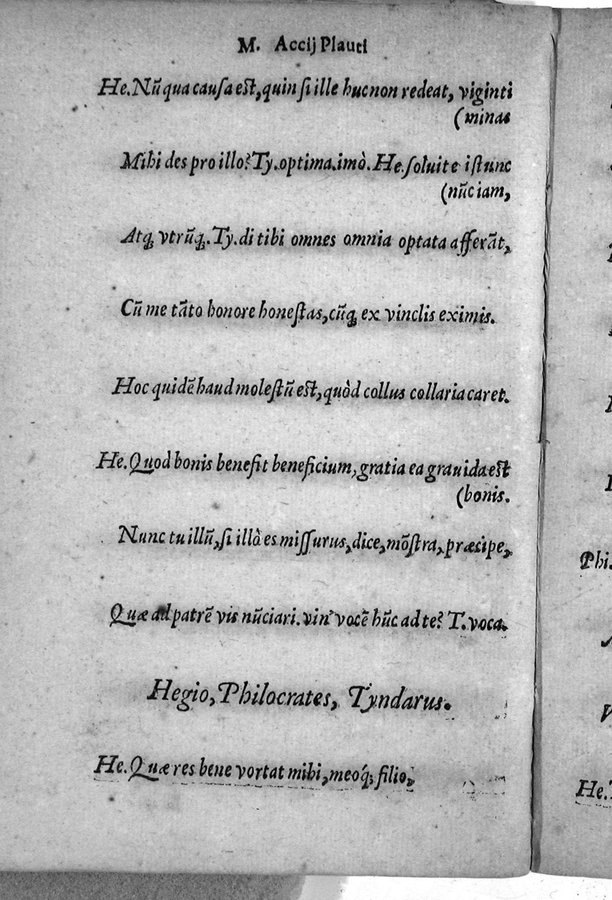 M. Accij Plauti
He. Nũqua causa est, quin si ille huc non redeat, viginti
(minas
Mihi des pro illo? Ty. optima. imò. He. soluite istunc
(nũciam,
Atq; vtrũq;. Ty. di tibi omnes omnia optata afferãt,
Cũ me tãto honore honestas, cũq; ex vinclis eximis.
Hoc quidẽ haud molestũ est, quòd collus collaria caret.
He. Quod bonis benefit beneficium, gratia ea grauida est
(bonis.
Nunc tu illũ, si illò es missurus, dice, mõstra, præcipe,
Quæ ad patrẽ vis nũciari. vin' vocẽ hũc ad te? T. voca.
Hegio, Philocrates, Tyndarus.
He. Quæ res bene vortat mihi, meoq́; filio,
Phi.
He.